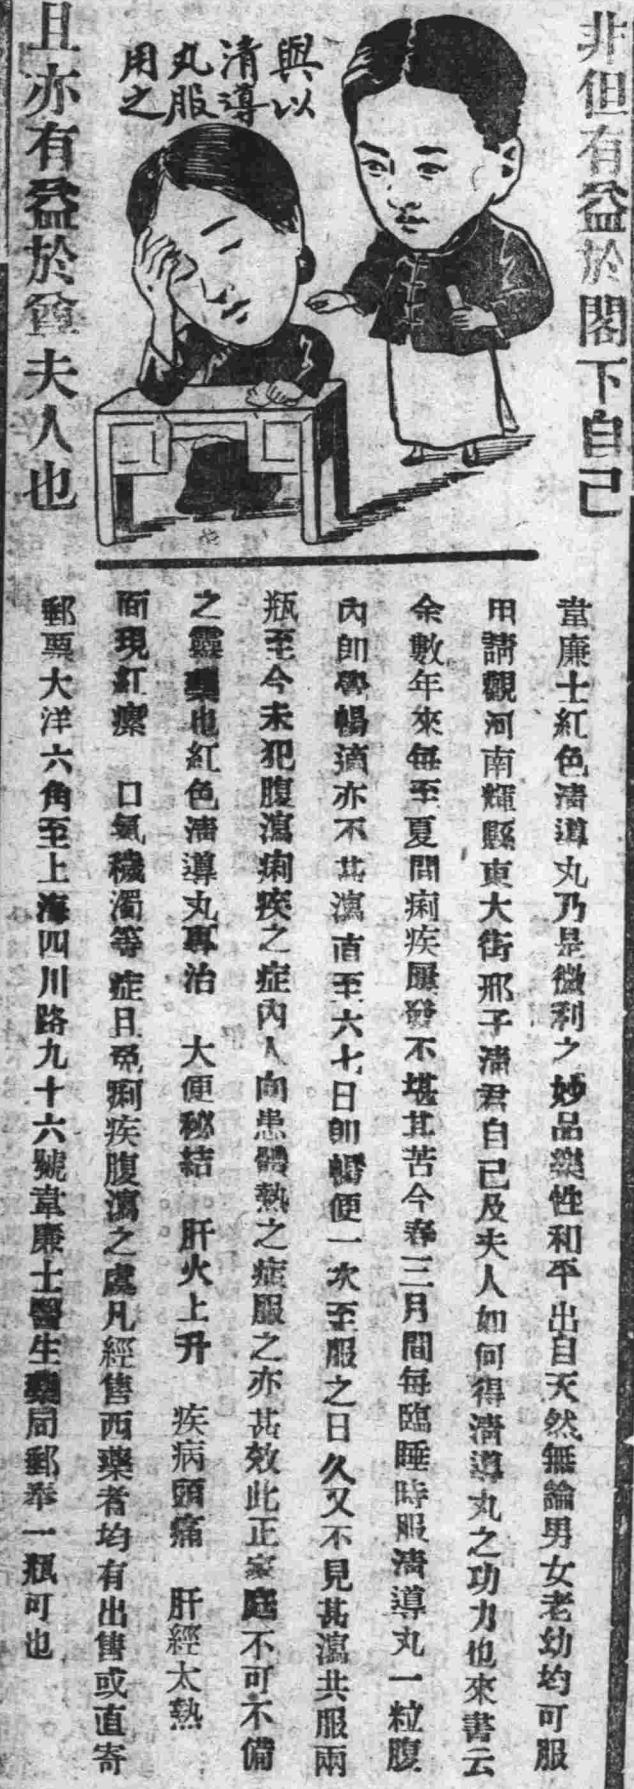 非但有益於閣下自己
與以
清導
丸服
用之
且亦有益於尊夫人也
韋廉士紅色清導丸乃是微利之妙品藥性和平出自天然無論男女老幼均可服
用請觀河南輝縣東大街邢子清君自己及夫人如何得清導丸之功力也來書云
余數年來每至夏間痢疾屢發不堪其苦今春三月間每臨睡時服清導丸一粒腹
內即覺暢適亦不甚瀉直至六七日即暢便一次至服之日久又不見甚瀉共服兩
瓶至今未犯腹瀉痢疾之症內人向患體熱之症服之亦甚效此正家庭不可不備
之靈藥也紅色清導丸專治 大便秘結 肝火上升 疾病頭痛 肝經太熱
面現紅瘰 口氣穢濁等症且免痢疾腹瀉之虞凡經售西藥者均有出售或直寄
郵票大洋六角至上海四川路九十六號韋廉士醫生藥局郵奉一瓶可也